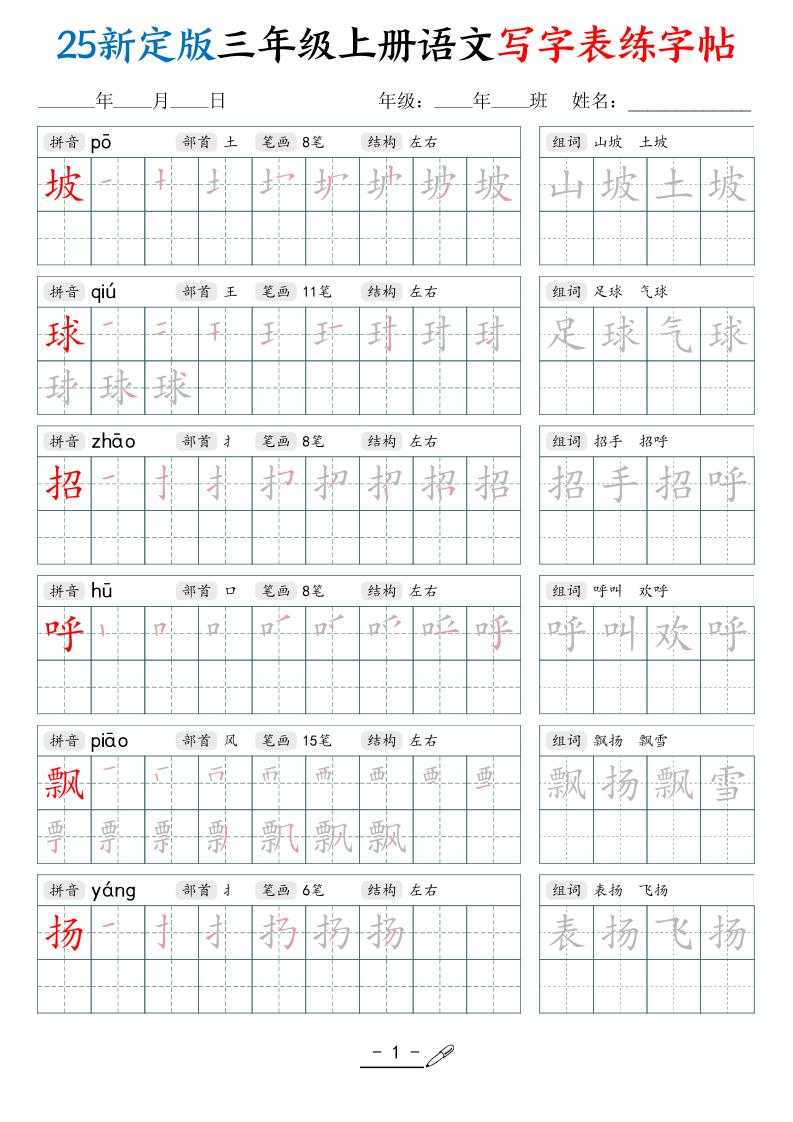 25新定版三年级上册语文写字表练字帖
______年____月____日 年级：____年____班 姓名：____________
拼音 pō 部首 土 笔画 8笔 结构 左右 组词 山坡 土坡
坡 山坡土坡
拼音 qiú 部首 王 笔画 11笔 结构 左右 组词 足球 气球
球 足球气球
拼音 zhāo 部首 扌 笔画 8笔 结构 左右 组词 招手 招呼
招 招手招呼
拼音 hū 部首 口 笔画 8笔 结构 左右 组词 呼叫 欢呼
呼 呼叫欢呼
拼音 piāo 部首 风 笔画 15笔 结构 左右 组词 飘扬 飘雪
飘 飘扬飘雪
拼音 yáng 部首 扌 笔画 6笔 结构 左右 组词 表扬 飞扬
扬 表扬飞扬
- 1 -